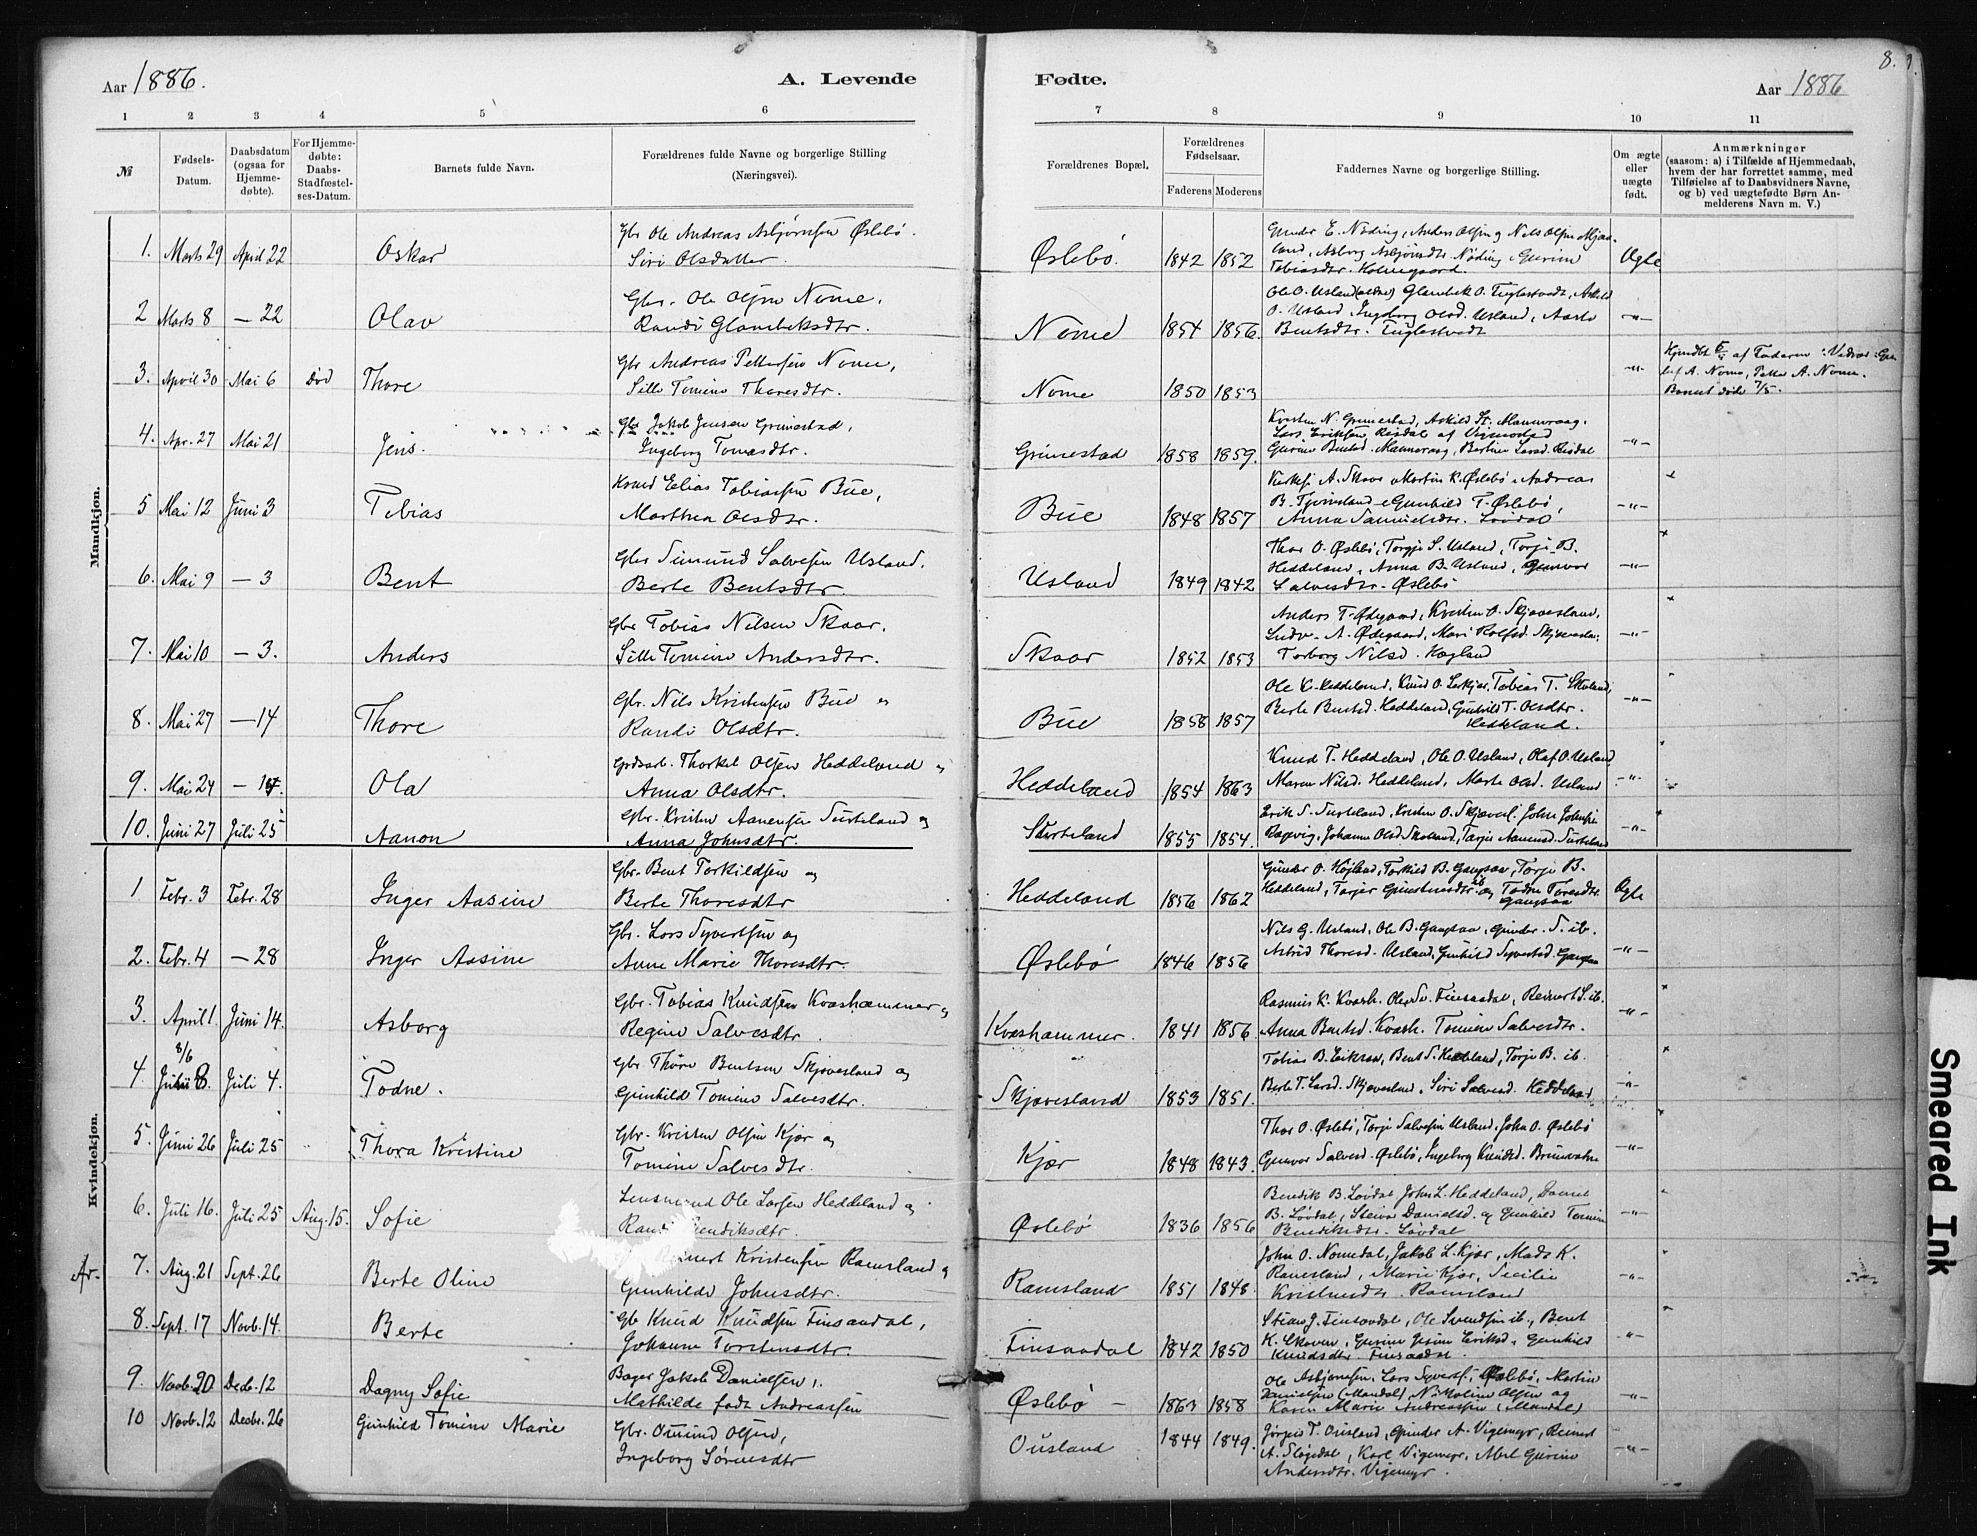 8.
Aar 1886.
A. Levende
Fødte.
Aar 1886
1 2 3 4 5 6 7 8 9 10 11
№
Fødsels-
Datum.
Daabsdatum
(ogsaa for
Hjemme-
døbte).
For Hjemme-
døbte:
Daabs-
Stadfæstel-
ses-Datum.
Barnets fulde Navn.
Forældrenes fulde Navne og borgerlige Stilling
(Næringsvei).
Forældrenes Bopæl.
Forældrenes
Fødselsaar.
Faderens Moderens
Faddernes Navne og borgerlige Stilling.
Om ægte
eller
uægte
født.
Anmærkninger
(saasom: a) i Tilfælde af Hjemmedaab,
hvem der har forrettet samme, med
Tilføielse af to Daabsvidners Navne,
og b) ved uægtefødte Børn An-
melderens Navn m. V.)
Mandkjøn.
1. Marts 29 April 22 Oskar
Gbr Ole Andreas Asbjørnsen Øslebø.
Siri Olsdatter.
Øslebø. 1842 1852
Gunder E. Nøding, Anders Olsen og Nils Olsen
Tobiasdtr. Holmegaard.
Ægte
2 Marts 8 — 22 Olav
Gbr. Ole Olsen Nome,
Randi Glambeksdtr.
Nome 1854 1856.
Ole O. Usland (ældre) Glambek O. Fuglestvedt, Askild
O. Usland, Ingeborg Olsd. Usland, Aaste
Bentsdtr. Fuglestvedt
—"—
3. April 30 Mai 6 Død Thore
Gbr Andreas Pettersen Nome,
Sille Tomine Thoresdtr.
Nome 1850 1853
—"—
Hjmdbt af Faderen
A. Nome, Petter A. Nome.
Barnet døde 7/5.
4. Apr. 27 Mai 21 Jens
Gbr Jakob Jensen Grimestad,
Ingeborg Tomasdtr.
Grimestad 1858 1859.
Kristen N. Grimestad, Askild
Lars Eriksen Risdal af Vigmostad
—"—
5 Mai 12 Juni 3 Tobias
Elias Tobiassen Bue,
Marthea Olsdtr.
Bue 1848 1857
A. Skaar, Martin K. Øslebø, Andreas
B. Tjomsland, Gunhild T. Øslebø,
Anna Samuelsdtr. Løvdal
—"—
6. Mai 9 — 3 Bent
Gbr Simund Salvesen Usland.
Berte Bentsdtr.
Usland 1849 1842
Thor O. Øslebø, Torgje S. Usland, Torje B.
Heddeland, Anna B. Usland, Gunvor
Salvesdtr. Øslebø
—"—
7. Mai 10 — 3. Anders
Gbr Tobias Nilsen Skaar.
Sille Tomine Andersdtr.
Skaar 1852 1853
Anders T. Ødegaard, Kristen O. Skjævesland,
Ludv. A. Ødegaard, Mari Rolfsd. Skjævesla.
Torborg Nilsd. Høgland
—"—
8. Mai 27 — 14 Thore
Gbr. Nils Kristensen Bue og
Randi Olsdtr.
Bue 1858 1857
Ole K. Heddeland, Knud O. Lerkjær, Tobias T. Skoland,
Berte Bentsd. Heddeland, Gunhild T. Olsdtr.
Heddeland.
—"—
9. Mai 24 — 14. Ola
Thorkel Olsen Heddeland og
Anna Olsdtr.
Heddeland 1854 1863
Knud T. Heddeland, Ole O. Usland, Olaf O. Usland
Maren Nilsd. Heddeland, Marte Olsd. Usland
—"—
10. Juni 27 Juli 25 Aanon
Gbr. Kristen Aanensen Surteland og
Anna Johnsdtr.
Surteland 1855 1854.
Erik S. Surteland, Kristen O. Skjævesl. John Johnsen
Røgevig, Johanne Olsd. Skoland, Tarjer Aanensd. Surteland
—"—
Kvindekjøn.
1 Febr. 3 Febr. 28 Inger Aasine
Gbr. Bent Torkildsen og
Berte Thoresdtr
Heddeland 1856 1862
Gunder O. Høgland, Torkild B. Gangsaa, Torje B.
Heddeland, Tarjer Gundersdtr ib. og Todne Toresdtr.
Gangsaa
Ægte
2. Febr. 4 — 28 Inger Aasine
Gbr. Lars Syvertsen og
Anne Marie Thoresdtr.
Øslebø 1846 1856
Nils G. Usland, Ole B. Gangsaa, Gunder S. ib.
Astrid Thoresd. Usland, Gunhild Syvertsd. Gangsaa
—"—
3. April 1. Juni 14. Asborg
Gbr. Tobias Knudsen Kvashammer og
Regine Salvesdtr.
Kvashammer. 1841 1856
Rasmus K. Kvash. Ole Sv. Finsaadal, Reinert S. ib.
Anna Bentsd. Kvash. Tomine Salvesdtr.
—"—
8/6
4 Juli 4. Todne.
Gbr Thore Bentsen Skjævesland og
Gunhild Tomine Salvesdtr.
Skjævesland 1853 1851.
Tobias B. Eikraa, Bent S. Heddeland, Torje B. ib.
Berte T. Larsd. Skjævesland, Siri Salvesd. Heddeland
—"—
5. Juni 26 Juli 25 Thora Kristine
Gbr. Kristen Olsen Kjær og
Tomine Salvesdtr.
Kjær 1848 1843.
Thor O. Øslebø, Torje Salvesen Usland, John O. Øslebø
Gunvor Salvesd. Øslebø, Ingeborg Knudsd. Brunvatne
—"—
6. Juli 16. Juli 25 Aug. 15. Sofie
Lensmand Ole Larsen Heddeland og
Randi Bendiksdtr.
Øslebø 1836 1856
Bendik B. Løvdal, John L. Heddeland, Daniel
B. Løvdal, Steinar Danielsd. og Gunhild Tomine
Bendiksdtr. Løvdal
—"—
Ar. 7. Aug. 21 Sept. 26 Berte Oline
Reinert Kristensen Ramsland og
Gunhilde Johnsdtr.
Ramsland 1851 1848.
John O. Nomedal, Jakob L. Kjær, Mads K.
Ramsland, Marie Kjær, Secilie
Kristensdtr. Ramsland
—"—
8. Sept. 17 Novb. 14. Berte
Gb Knud Knudsen Finsaadal,
Johanne Torstensdtr.
Finsaadal 1842 1850
Stian J. Finsaadal, Ole Svendsen ib., Bent
K. Skoven, Gurine Eriksd., Gunhild
Knudsdtr Finsaadal.
—"—
9. Novb. 20 Decb. 12 Dagny Sofie
Bager Jakob Danielsen,
Mathilde født Andreassen
Øslebø — 1863 1858
Ole Asbjønsen, Lars Syverts. Øslebø, Martin
Danielsen (Mandal), Nikoline Olsen og
Karen Marie Andreassen (Mandal)
—"—
10 Novb. 12 Decbr. 26 Gunhild Tomine Marie
Gbr. Omund Olsen,
Ingeborg Sørensdtr
Ousland 1844 1849.
Jørgen T. Ousland, Gunder A. Vigemyr, Reinert
A. Sløgedal, Karl Vigemyr, Abel Gurine
Andersdtr. Vigemyr.
—"—
Smeared Ink